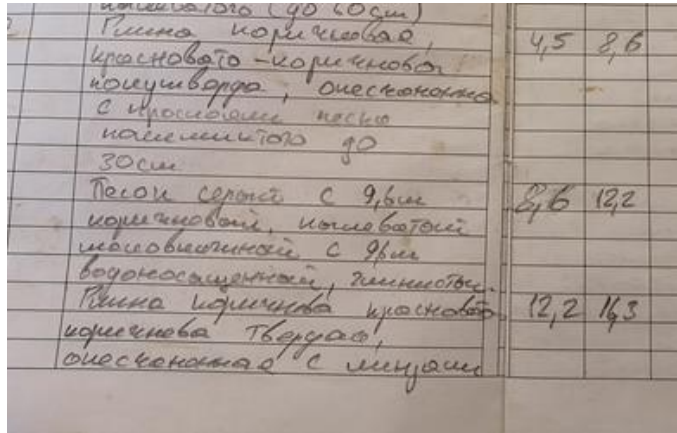 пылеватого (до 60см)
Глина коричневая, 4,5 8,6
красновато-коричнева
полутверда, опесконенна
с прослоями песка
пылеватого до
30см
Песок серый с 9,6м 8,6 12,2
коричневый, пылеватый
маловлажный с 9,6м
водонасыщенный, глинистый.
Глина коричнева красновато 12,2 16,3
коричнева твердая,
опесконенная с линзами